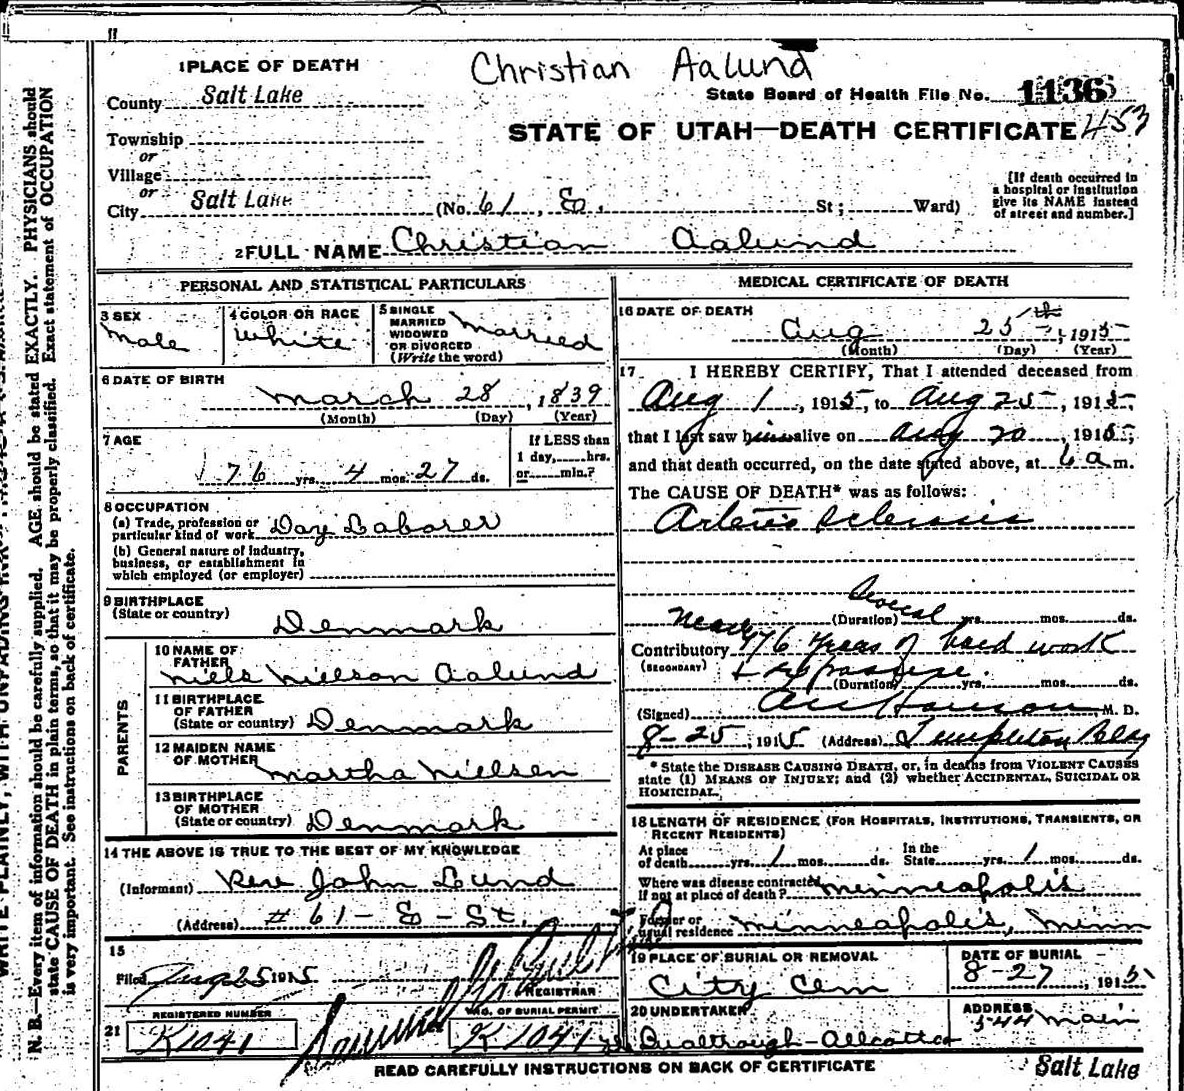 Christian Aalund
1 PLACE OF DEATH
County Salt Lake
State Board of Health File No. 1136
453
STATE OF UTAH—DEATH CERTIFICATE
Township
or
Village
or
City Salt Lake (No. 61, E. St; Ward)
[If death occurred in a hospital or institution give its NAME instead of street and number.]
2 FULL NAME Christian Aalund
PERSONAL AND STATISTICAL PARTICULARS
3 SEX
Male
4 COLOR OR RACE
White
5 SINGLE
MARRIED
WIDOWED
OR DIVORCED
(Write the word)
Married
6 DATE OF BIRTH
March 28, 1839
(Month) (Day) (Year)
7 AGE
76 yrs. 4 mos. 27 ds.
If LESS than
1 day, hrs.
or min.?
8 OCCUPATION
(a) Trade, profession or
particular kind of work Day Laborer
(b) General nature of industry,
business, or establishment in
which employed (or employer)
9 BIRTHPLACE
(State or country)
Denmark
PARENTS
10 NAME OF
FATHER
Niels Nielson Aalund
11 BIRTHPLACE
OF FATHER
(State or country) Denmark
12 MAIDEN NAME
OF MOTHER
Martha Nielsen
13 BIRTHPLACE
OF MOTHER
(State or country) Denmark
14 THE ABOVE IS TRUE TO THE BEST OF MY KNOWLEDGE
(Informant) John Lund
(Address) # 61 - E - St.
15
Filed Aug 25 1915
REGISTRAR
REGISTERED NUMBER
21 K1041
NO. OF BURIAL PERMIT
K 1041
MEDICAL CERTIFICATE OF DEATH
16 DATE OF DEATH
Aug 25th, 1915
(Month) (Day) (Year)
17 I HEREBY CERTIFY, That I attended deceased from
Aug 1, 1915, to Aug 25, 1915,
that I last saw him alive on Aug 20, 1915,
and that death occurred, on the date stated above, at 6 a m.
The CAUSE OF DEATH* was as follows:
Arterio Sclerosis
(Duration) Several yrs. mos. ds.
Contributory Nearly 76 years of hard work
(SECONDARY)
(Duration) yrs. mos. ds.
(Signed) M. D.
8-25, 1915 (Address) Templeton Bldg
* State the DISEASE CAUSING DEATH, or, in deaths from VIOLENT CAUSES
state (1) MEANS OF INJURY; and (2) whether ACCIDENTAL, SUICIDAL OR
HOMICIDAL.
18 LENGTH OF RESIDENCE (FOR HOSPITALS, INSTITUTIONS, TRANSIENTS, OR
RECENT RESIDENTS)
At place
of death yrs. 1 mos. ds.
In the
State yrs. 1 mos. ds.
Where was disease contracted
if not at place of death? Minneapolis
Former or
usual residence Minneapolis, Minn
19 PLACE OF BURIAL OR REMOVAL
City Cem
DATE OF BURIAL
8-27, 1915
20 UNDERTAKER
ADDRESS
544 Main
Salt Lake
READ CAREFULLY INSTRUCTIONS ON BACK OF CERTIFICATE
N. B.—Every item of information should be carefully supplied. AGE should be stated EXACTLY. PHYSICIANS should
state CAUSE OF DEATH in plain terms, so that it may be properly classified. Exact statement of OCCUPATION
is very important. See instructions on back of certificate.